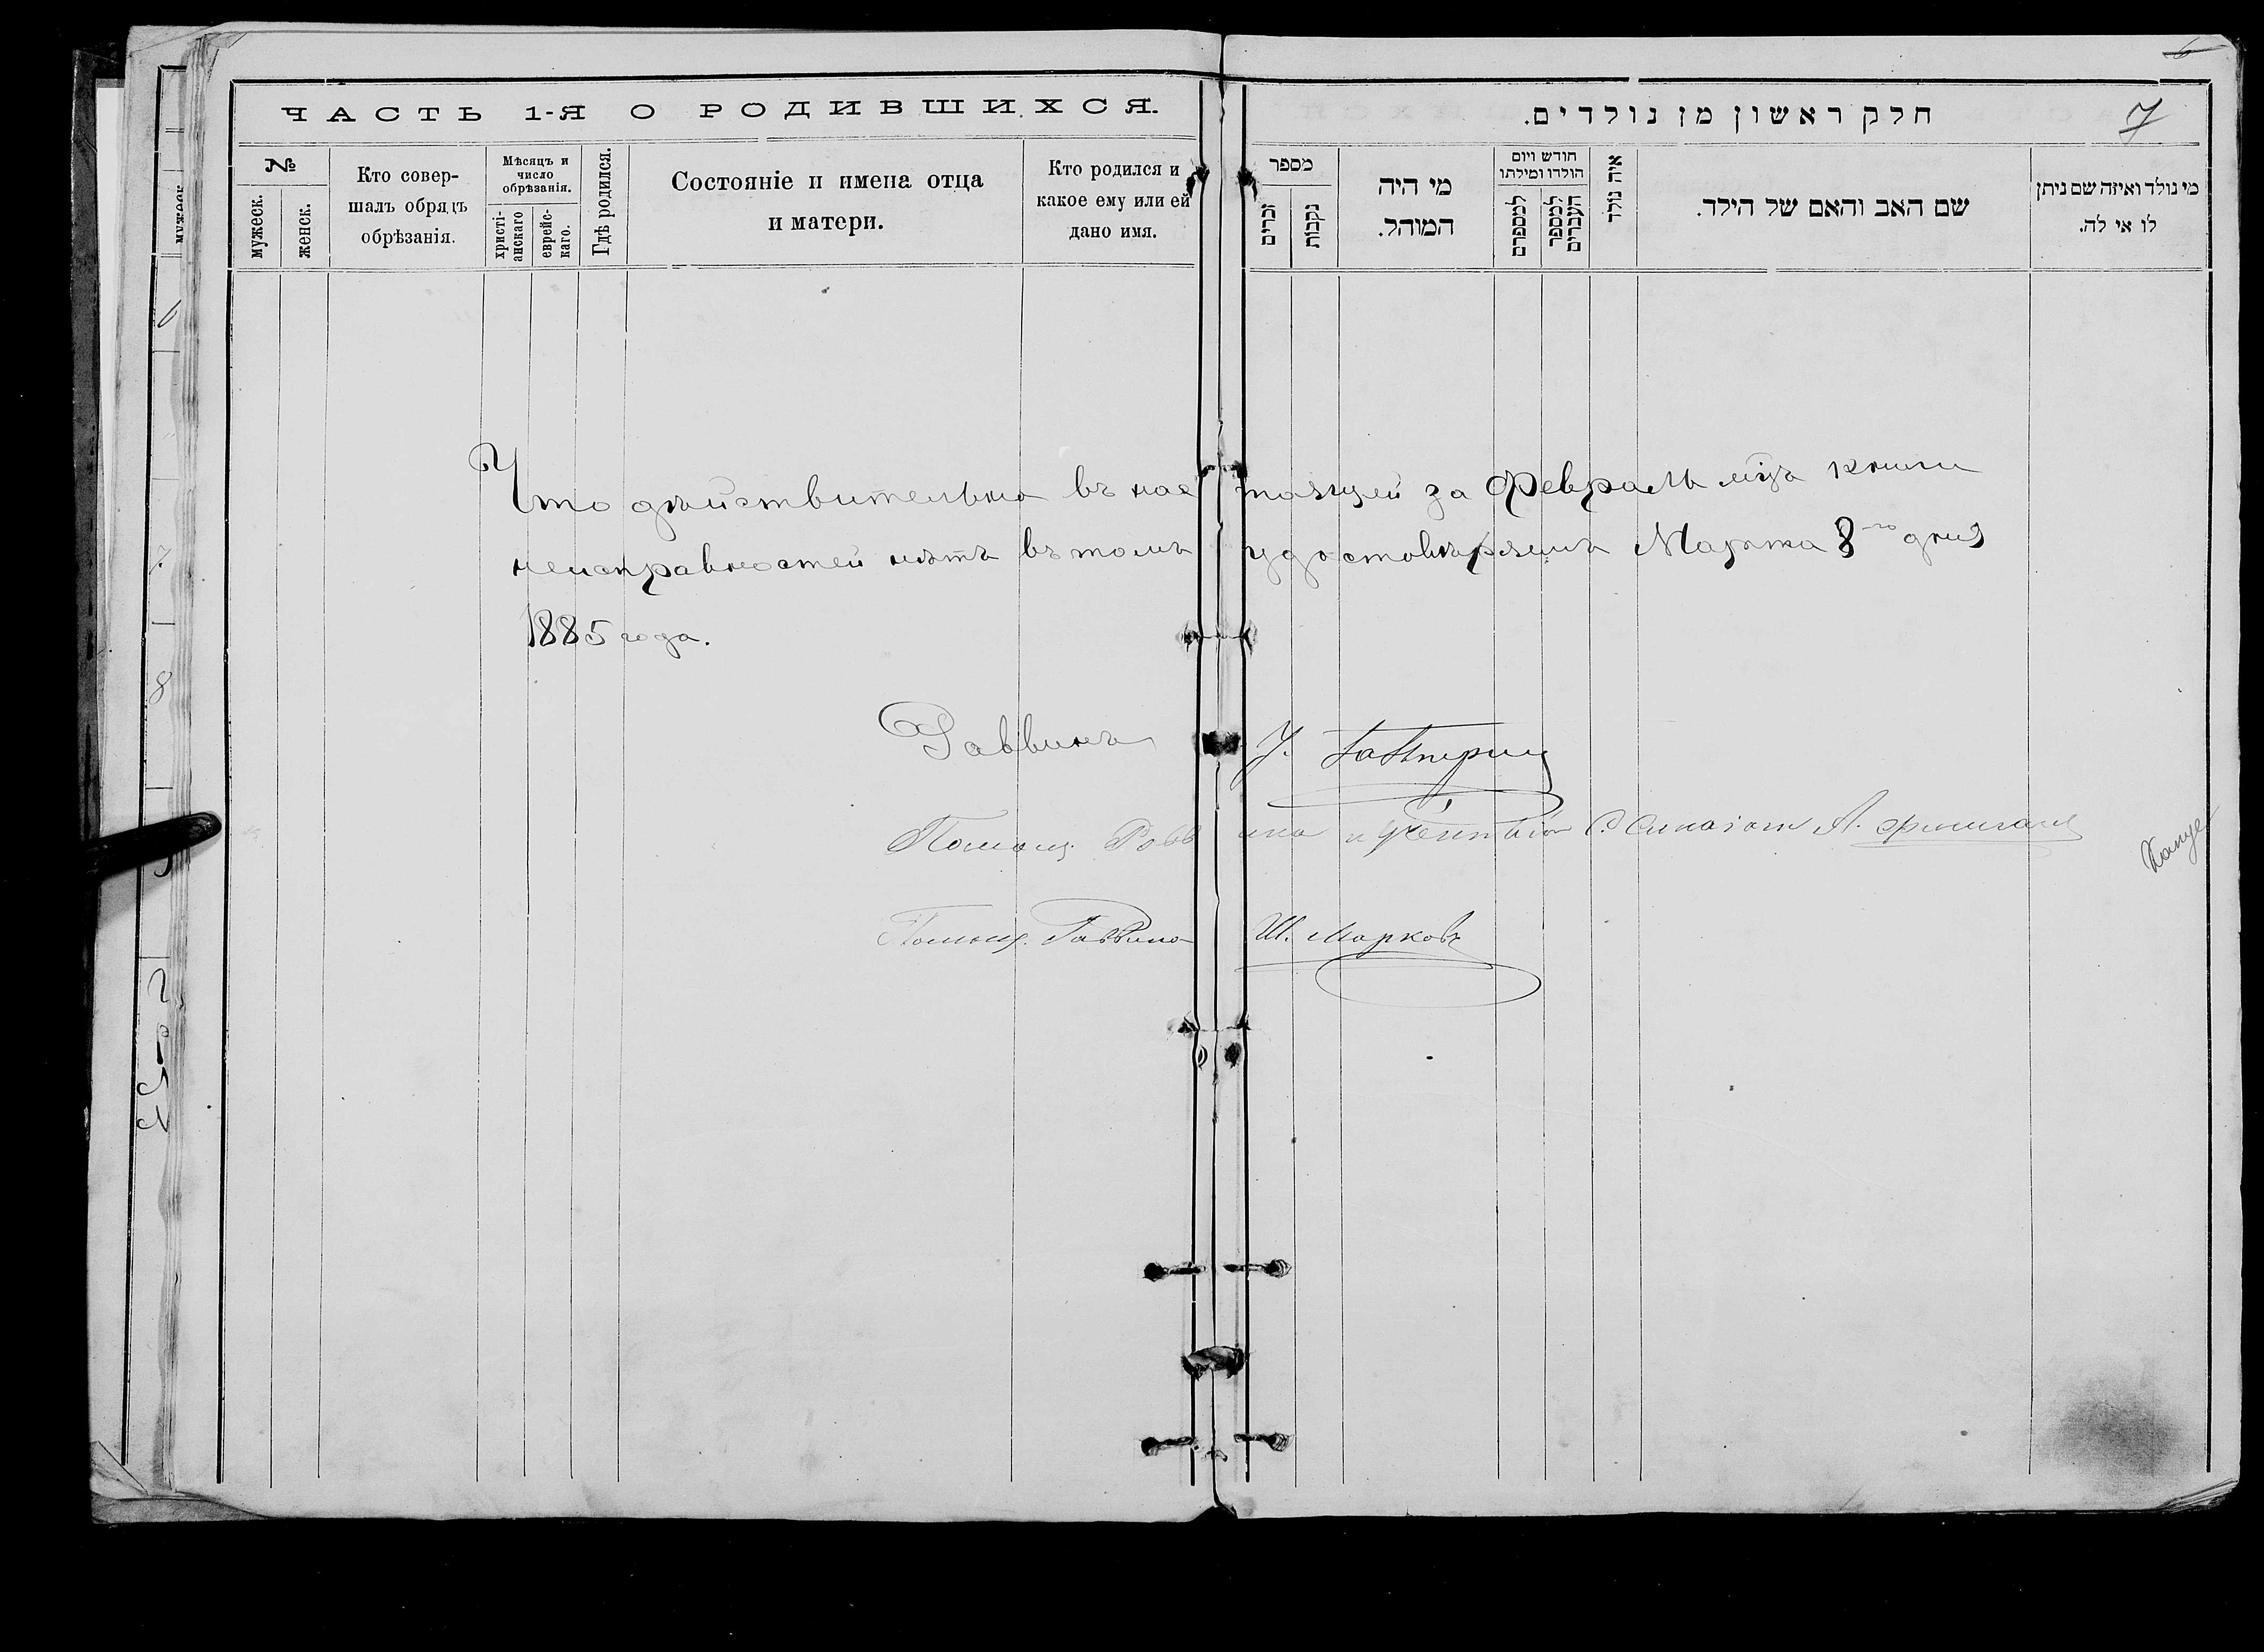 ЧАСТЬ 1-Я О РОДИВШИХСЯ.
№
мужеск.
женск.
Кто совер-
шалъ обрядъ
обрѣзанія.
Мѣсяцъ и
число
обрѣзанія.
христі-
анскаго
еврейс-
каго.
Гдѣ родился.
Состояніе и имена отца
и матери.
Кто родился и
какое ему или ей
дано имя.
6
7
חלק ראשון מן נולדים.
מספר
זכרים
נקבות
מי היה
המוהל.
חודש ויום
הולדו ומילתו
למספרם
למספר
העברים
איה נולד
שם האב והאם של הילד.
מי נולד ואיזה שם ניתן
לו אי לה.
мужеск.
6
7
8
Что дѣйствительно въ настоящей за Февраль мцъ книги
неисправностей нѣтъ въ томъ удостовѣряемъ Марта 8го дня
1885 года.
Раввинъ
Помощ. Раввина и
Помощ. Раввина Ш. Марковъ